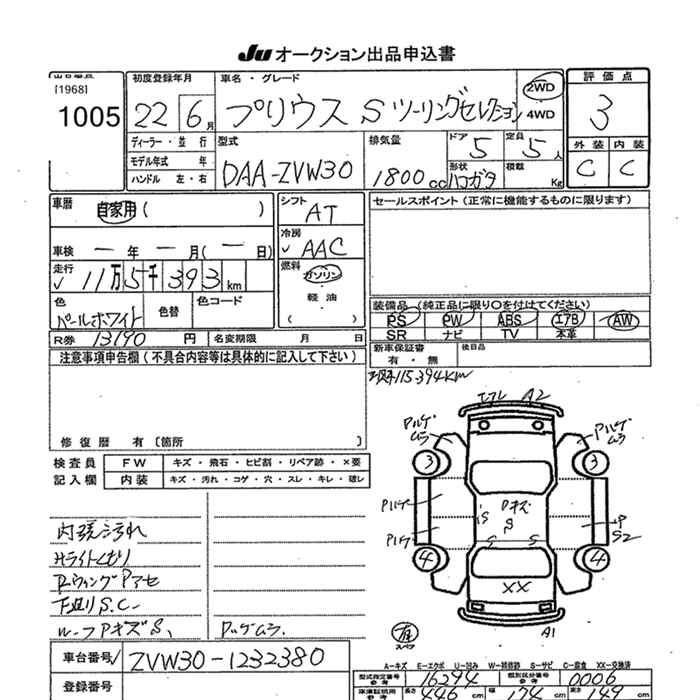 Ju オークション出品申込書
[1968]
1005
初度登録年月
22 6月
車名・グレード
プリウス Sツーリングセレクション
2WD
4WD
評価点
3
外装 内装
C C
ディーラー・並行
モデル年式 年
ハンドル 左・右
型式
DAA-ZVW30
排気量
1800cc
ドア
5
定員
5人
形状
ハコガタ
積載
Kg
車歴
自家用 ( )
車検 ー年ー月(ー日)
走行
✓ 11万5千393km
シフト
AT
冷房
✓ AAC
燃料
ガソリン
軽油
( )
色
パールホワイト
色替
色コード
R券 13190円
名変期限 月 日
セールスポイント(正常に機能するものに限ります)
装備品(純正品に限り○を付けてください)
PS PW ABS エアB AW
SR ナビ TV 本革
新車保証書
有・無
後日品
115.394km
注意事項申告欄(不具合内容等は具体的に記入して下さい)
修復歴 有〔箇所 〕
検査員
記入欄
FW キズ・飛石・ヒビ割・リペア跡・×要
内装 キズ・汚れ・コゲ・穴・スレ・キレ・破レ
内張汚れ
Hライトくもり
Rウィングアセ
下廻りS.C-
ルーフPキズS,
Pハゲムラ
エアレ A2
Pハゲ
ムラ
Pハゲムラ
3 3
Pハゲ
Pキズ
S
S
P
S2
Pハゲ
S S
4 4
XX
A1
有
スペア
車台番号 ✓ ZVW30-1232380
登録番号
A-キズ E-エクボ U-凹み W-補修跡 S-サビ C-腐食 XX-交換済
型式指定番号
参考
16294
類別区分番号
参考
0006
車庫証明用
参考
長さ 446cm
幅 174cm
高さ 149cm